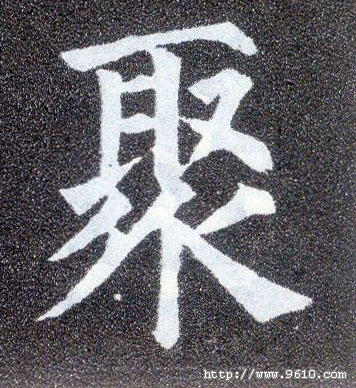 聚
http://www.9610.com